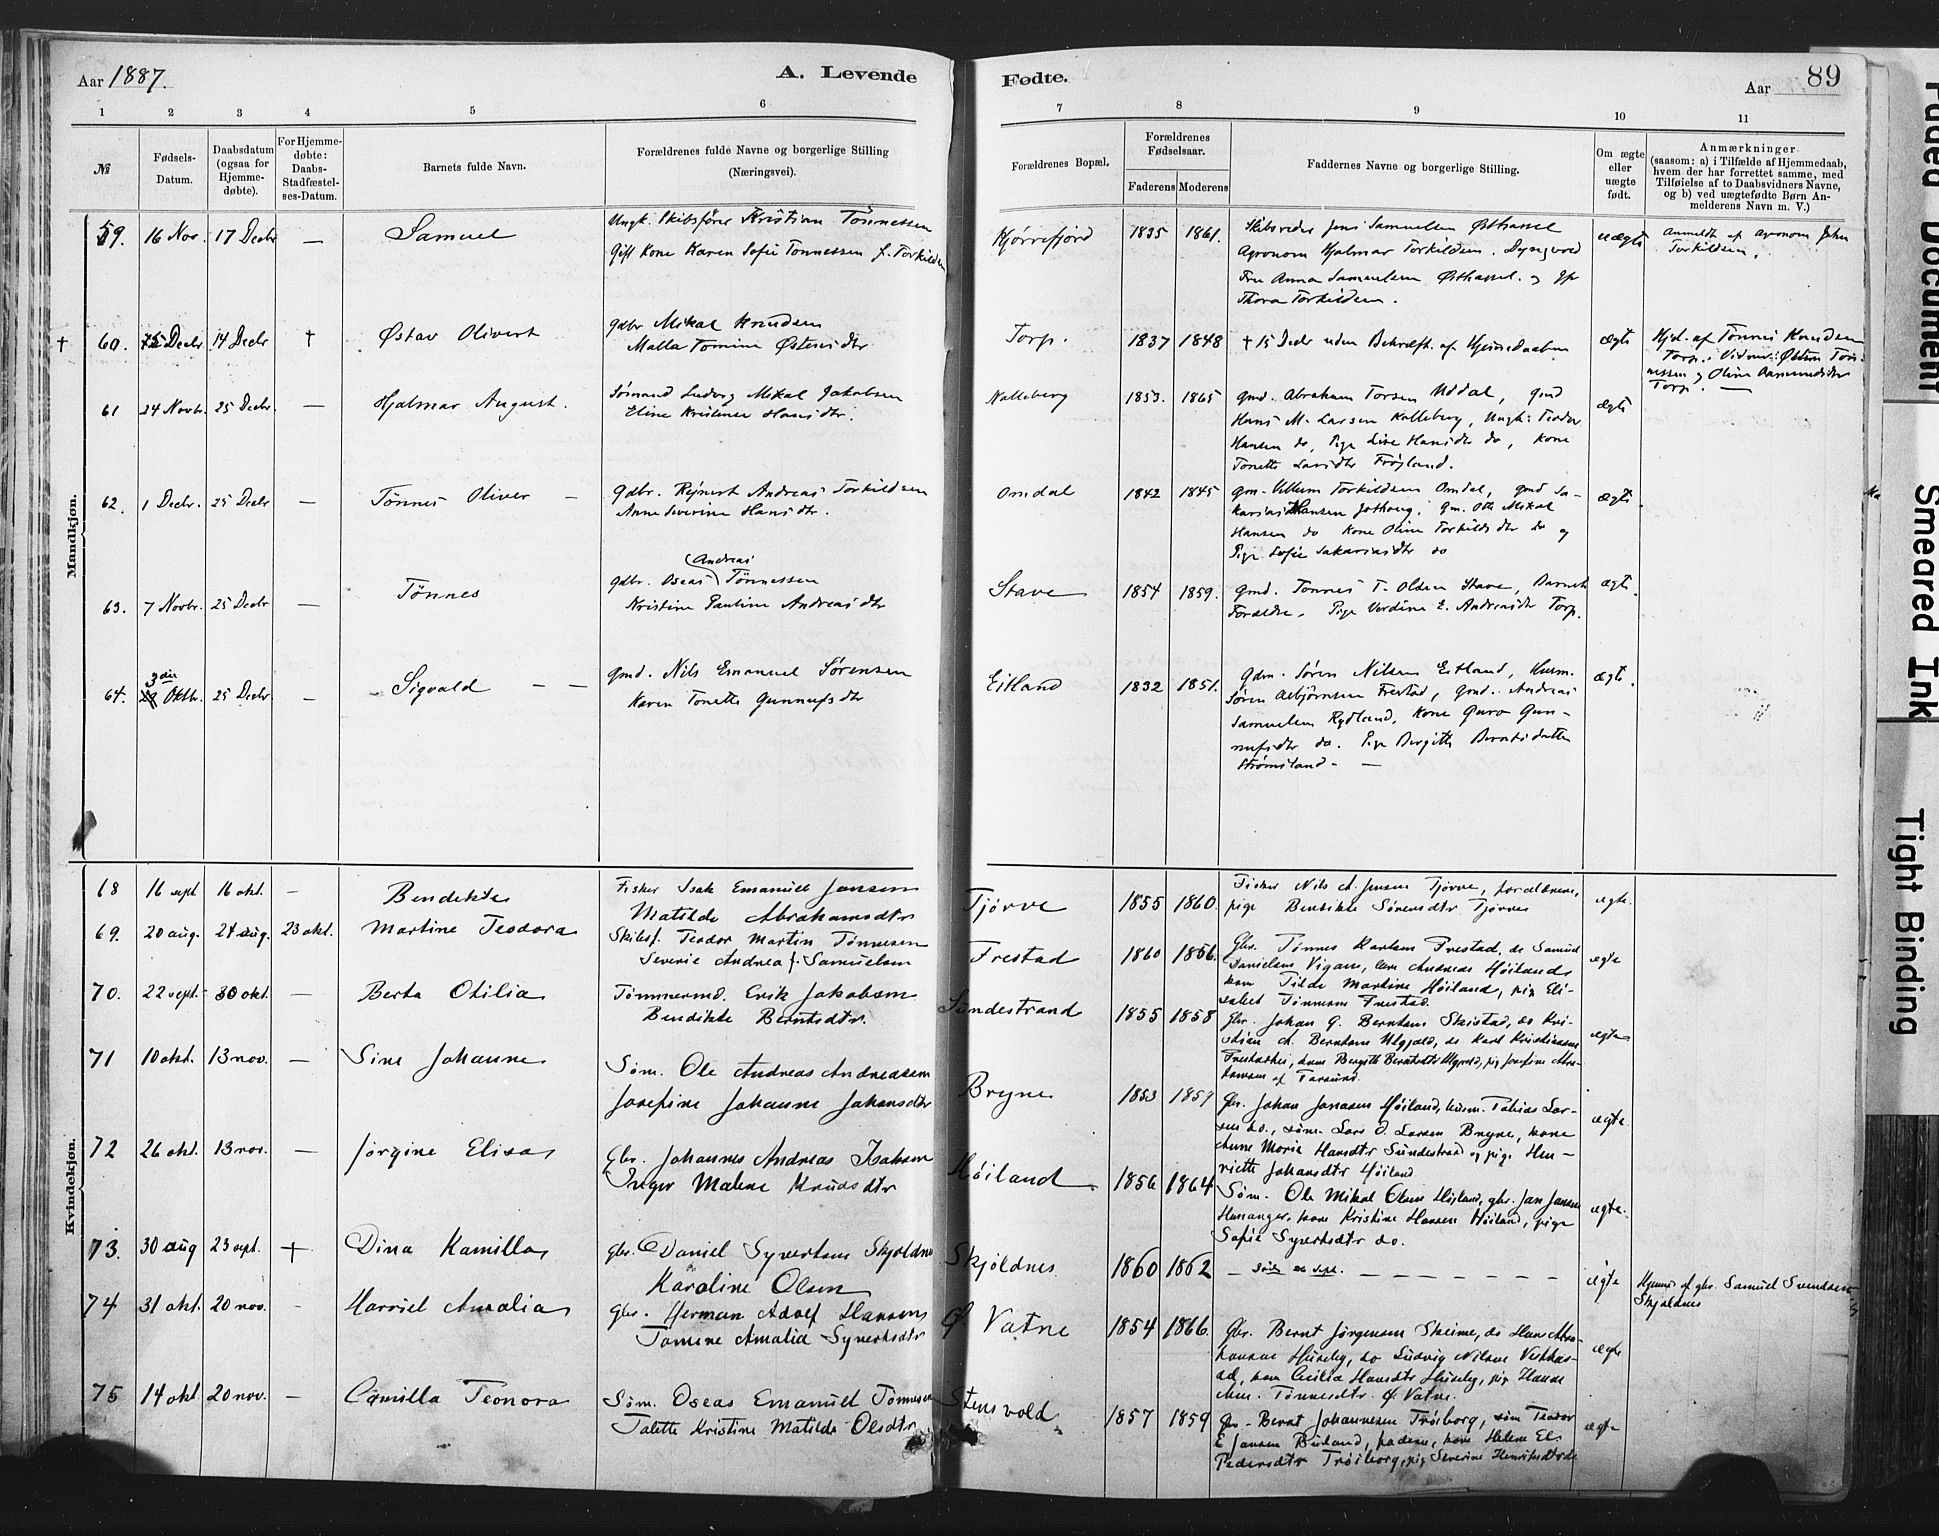 Aar 1887.
A. Levende
Fødte.
Aar
89
1 2 3 4 5 6 7 8 9 10 11
№
Fødsels-
Datum.
Daabsdatum
(ogsaa for
Hjemme-
døbte).
For Hjemme-
døbte:
Daabs-
Stadfæstel-
ses-Datum.
Barnets fulde Navn.
Forældrenes fulde Navne og borgerlige Stilling
(Næringsvei).
Forældrenes Bopæl.
Forældrenes
Fødselsaar.
Faderens Moderens
Faddernes Navne og borgerlige Stilling.
Om ægte
eller
uægte
født.
Anmærkninger
(saasom: a) i Tilfælde af Hjemmedaab,
hvem der har forrettet samme, med
Tilføielse af to Daabsvidners Navne,
og b) ved uægtefødte Børn An-
melderens Navn m. V.)
Mandkjøn.
59. 16 Nov. 17 Decbr — Samuel
Ungk. Skibsfører Kristian Tönnessen
Gift Kone Karen Sofie Tonnessen f. Torkildsen
1835 1861.
Skibsreder Jens Samuelsen Østhassel
Agronom Hjalmar Torkildsen
Fru Anna Samuelsen Østhassel og
Thora Torkildsen.
uægte
Anmeldt af agronom John
Torkildsen.
† 60. Decbr 14 Decbr † Østav Olivert
Gdbr. Mikal Knudsen
Malla Tomine Østensdtr
Torp. 1837 1848
† 15 Decbr uden Bekræft. af Hjemmedaaben
ægte
Hjd. af Tönnes Knudsen
Torp. Vidner: Østen Tön-
nessen og Oline Aanundsdtr
Torp. —
61 24 Novbr. 25 Decbr — Hjalmar August.
Sömand Ludvig Mikal Jakobsen
Eline Kristense Hansdtr.
Kalleberg 1853. 1865
gmd. Abraham Torsen Uddal, gmd
Hans M. Larsen Kalleberg, Ungk: Teodor
Hansen do, Pige Line Hansdtr do, Kone
Tonette Larsdtr Fröyland.
ægte
62. 1 Decbr. 25 Decbr — Tönnes Oliver —
Gdbr. Rejnert Andreas Torkildsen
Anne Severine Hansdtr.
Omdal 1842 1845
gm. Villum Torkildsen Omdal, gmd Sa-
karias Hansen, gm. Otto Mikal
Hansen do Kone Oline Torkildsdtr do og
Pige Sofie Sakariasdtr do
ægte
63. 7 Novbr. 25 Decbr — Tönnes
Andreas
gdbr. Oseas Tönnessen
Kristine Pauline Andreasdtr
Stave 1854 1859.
gmd. Tonnes T. Olsen Stave, Barnets
Foræ­ldre, Pige Verdine E. Andreasdtr Torp.
ægte.
64. 3die Oktb. 25 Decbr — Sigvald — —
gmd. Nils Emanuel Sørensen
Karen Tonette Gunnufsdtr
Eitland 1832 1851.
Gdm. Sören Nilsen Eitland, Husm.
Sören Asbjörnsen Frestad, gmd. Andreas
Samuelsen Rydland, Kone Guro Gun-
nufsdtr do. Pige Bergitte Berntsdatter
Strömsland. —
ægte.
Kvindekjøn.
68 16 sept 16 okt. — Bendikte
Fisker Isak Emanuel Jansen
Matilde Abrahamsdtr
Tjörve 1855 1860.
Fisker Nils A. Jensen Tjörve, forældrene,
pige Bendikte Sörensdtr Tjörves
ægte.
69. 20 aug. 27 aug. 23 okt. Martine Teodora
Skibsf. Teodor Martin Tönnesen
Severie Andrea f. Samuelsen
Frestad 1860 1856.
Gbr. Tönnes Karlsen Frestad, do Samuel
Danielsen Vigan, Andreas Höiland,
kone Tilde Martine Höiland, pige Eli-
sabet Tönnesen Frestad.
ægte
70. 22 sept. 30 okt. — Berta Otilia
Tömmermd. Erik Jakobsen
Bendikte Berntsdtr.
Sundestrand 1855 1858
Gbr. Johan G. Berntsen Skeistad, do Kri-
stian A. Berntsen Ulgjeld, do Karl Kristiansen
ægte
71 10 okt. 13 nov. — Sine Johanne
Söm. Ole Andreas Andreassen
Josefine Johanne Johansdtr
Bryne 1853 1859
Gbr. Johan Janasen Höiland, husm. Tobias Lar-
sen do., söm. Lars O. Larsen Bryne, kone
Anne Marie Hansdtr Sundestrand og pige Hen-
riette Johansdtr Höiland
ægte.
72 26 okt. 13 nov. — Jörgine Elisa
Gbr. Johannes Andreas Isaksen
Inger Malene Knudsdtr
Höiland 1856 1864
Söm. Ole Mikal Olsen Höiland, gbr. Jan Jansen
Hananger, kone Kristine Hansen Höiland, pige
Sofie Syvertsdtr do.
ægte.
73. 30 aug 23 sept. + Dina Kamilla
gbr. Daniel Syvertsen Skjoldnes
Karoline Olsen
Skjöldnes 1860 1862
— Död 26 sept. — — — — —
ægte
Hjemmed. af gbr. Samuel Svendsen
Skjoldnes
74 31 okt. 20 nov. - Harriet Amalia
gbr. Herman Adolf Hansen
Tomine Amalia Syvertsdtr
Ø. Vatne 1854 1866.
Gbr. Bernt Jörgensen Skeime, do Hans Abra-
hamsen Huseby, do Ludvig Nilsen Vetthus-
, kone Cecilia Hansdtr Huseby, pige Hanne
Tönnesdtr. Ø. Vatne.
ægte
75 14 okt 20 nov. — Camilla Teonora
Söm. Oseas Emanuel Tönnesen
Talette Kristine Matilde Olsdtr
Stensvold 1857 1859
Gbr. Bernt Johannesen Tröiborg, söm Teodor
E Jansen Buland, faderen, kone Helene El.
Pedersdtr Tröiborg, pig Severine Henriksdtr do
ægte
Faded Document
Smeared Ink
Tight Binding